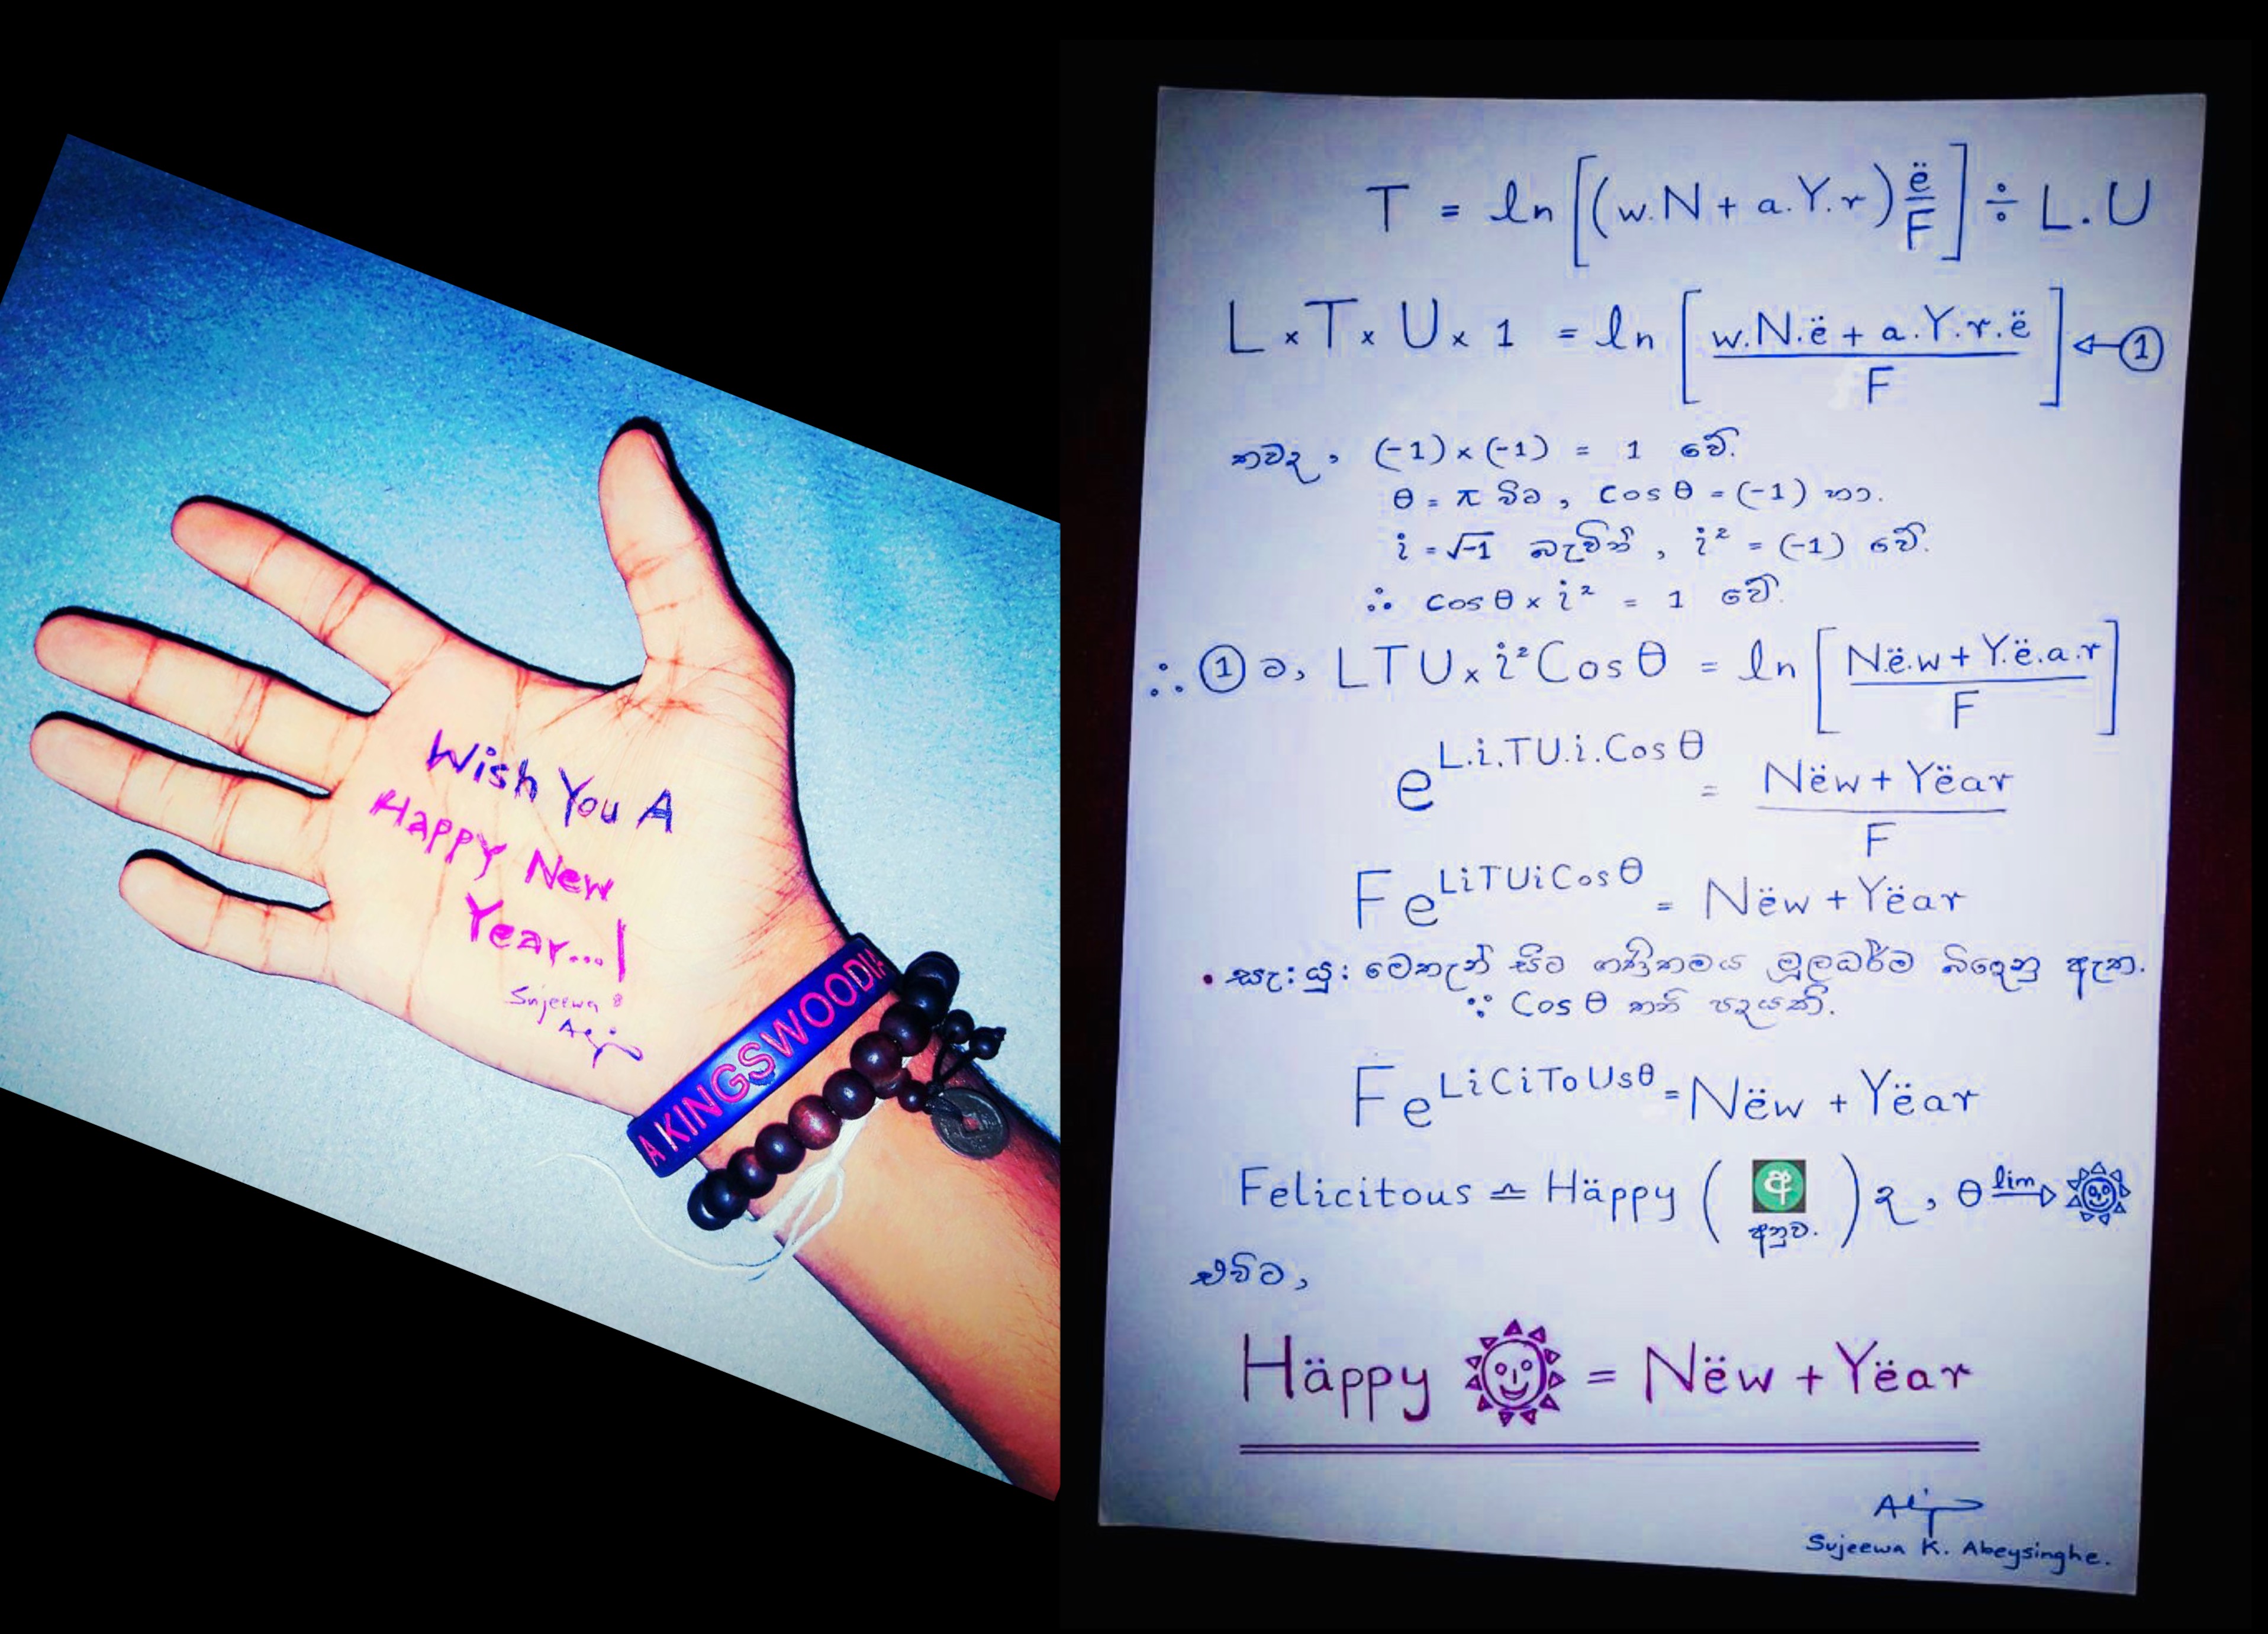 Wish You A
Happy New
Year...!
Sujeewa
A KINGSWOODIA
T = ln [(w.N + a.Y.r) ë/F] ÷ L.U
L × T × U × 1 = ln [(w.N.ë + a.Y.r.ë)/F] ← ①
තවද, (-1) × (-1) = 1 වේ.
θ = π විට, cos θ = (-1) හා.
i = √-1 බැවින්, i² = (-1) වේ.
∴ cos θ × i² = 1 වේ.
∴ ① ට, LTU × i² Cos θ = ln [(N.ë.w + Y.ë.a.r)/F]
e^(L.i.TU.i.Cos θ) = (Nëw + Yëar)/F
Fe^(LiTUiCos θ) = Nëw + Yëar
• සැ: යු: මෙතැන් සිට ගණිතමය මූලධර්ම බිඳෙනු ඇත.
∵ Cos θ තනි පදයකි.
Fe^(LiCiToUsθ) = Nëw + Yëar
Felicitous ≏ Häppy (අ අනුව.) ද, θ lim→
එවිට,
Häppy = Nëw + Yëar
Sujeewa K. Abeysinghe.